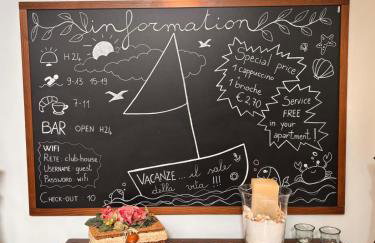 information
H24
9-13 15-19
7-11
BAR OPEN H24
WIFI
RETE: club-house
USERNAME guest
PASSWORD wifi
CHECK-OUT 10
Special price
1 cappuccino
1 brioche
€ 2,70
Service
FREE
in your
apartment!
VACANZE... il sale
della vita !!!